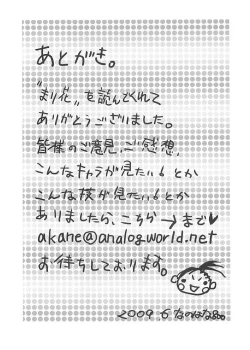 あとがき。
"まり花"を読んでくれて
ありがとうございました。
皆様のご意見、ご感想、
こんなキャラが見たい!とか
こんな技が見たい!とか
ありましたら、こちら→まで♥
akane@analog.world.net
お待ちしております。
2009 6 なのはな